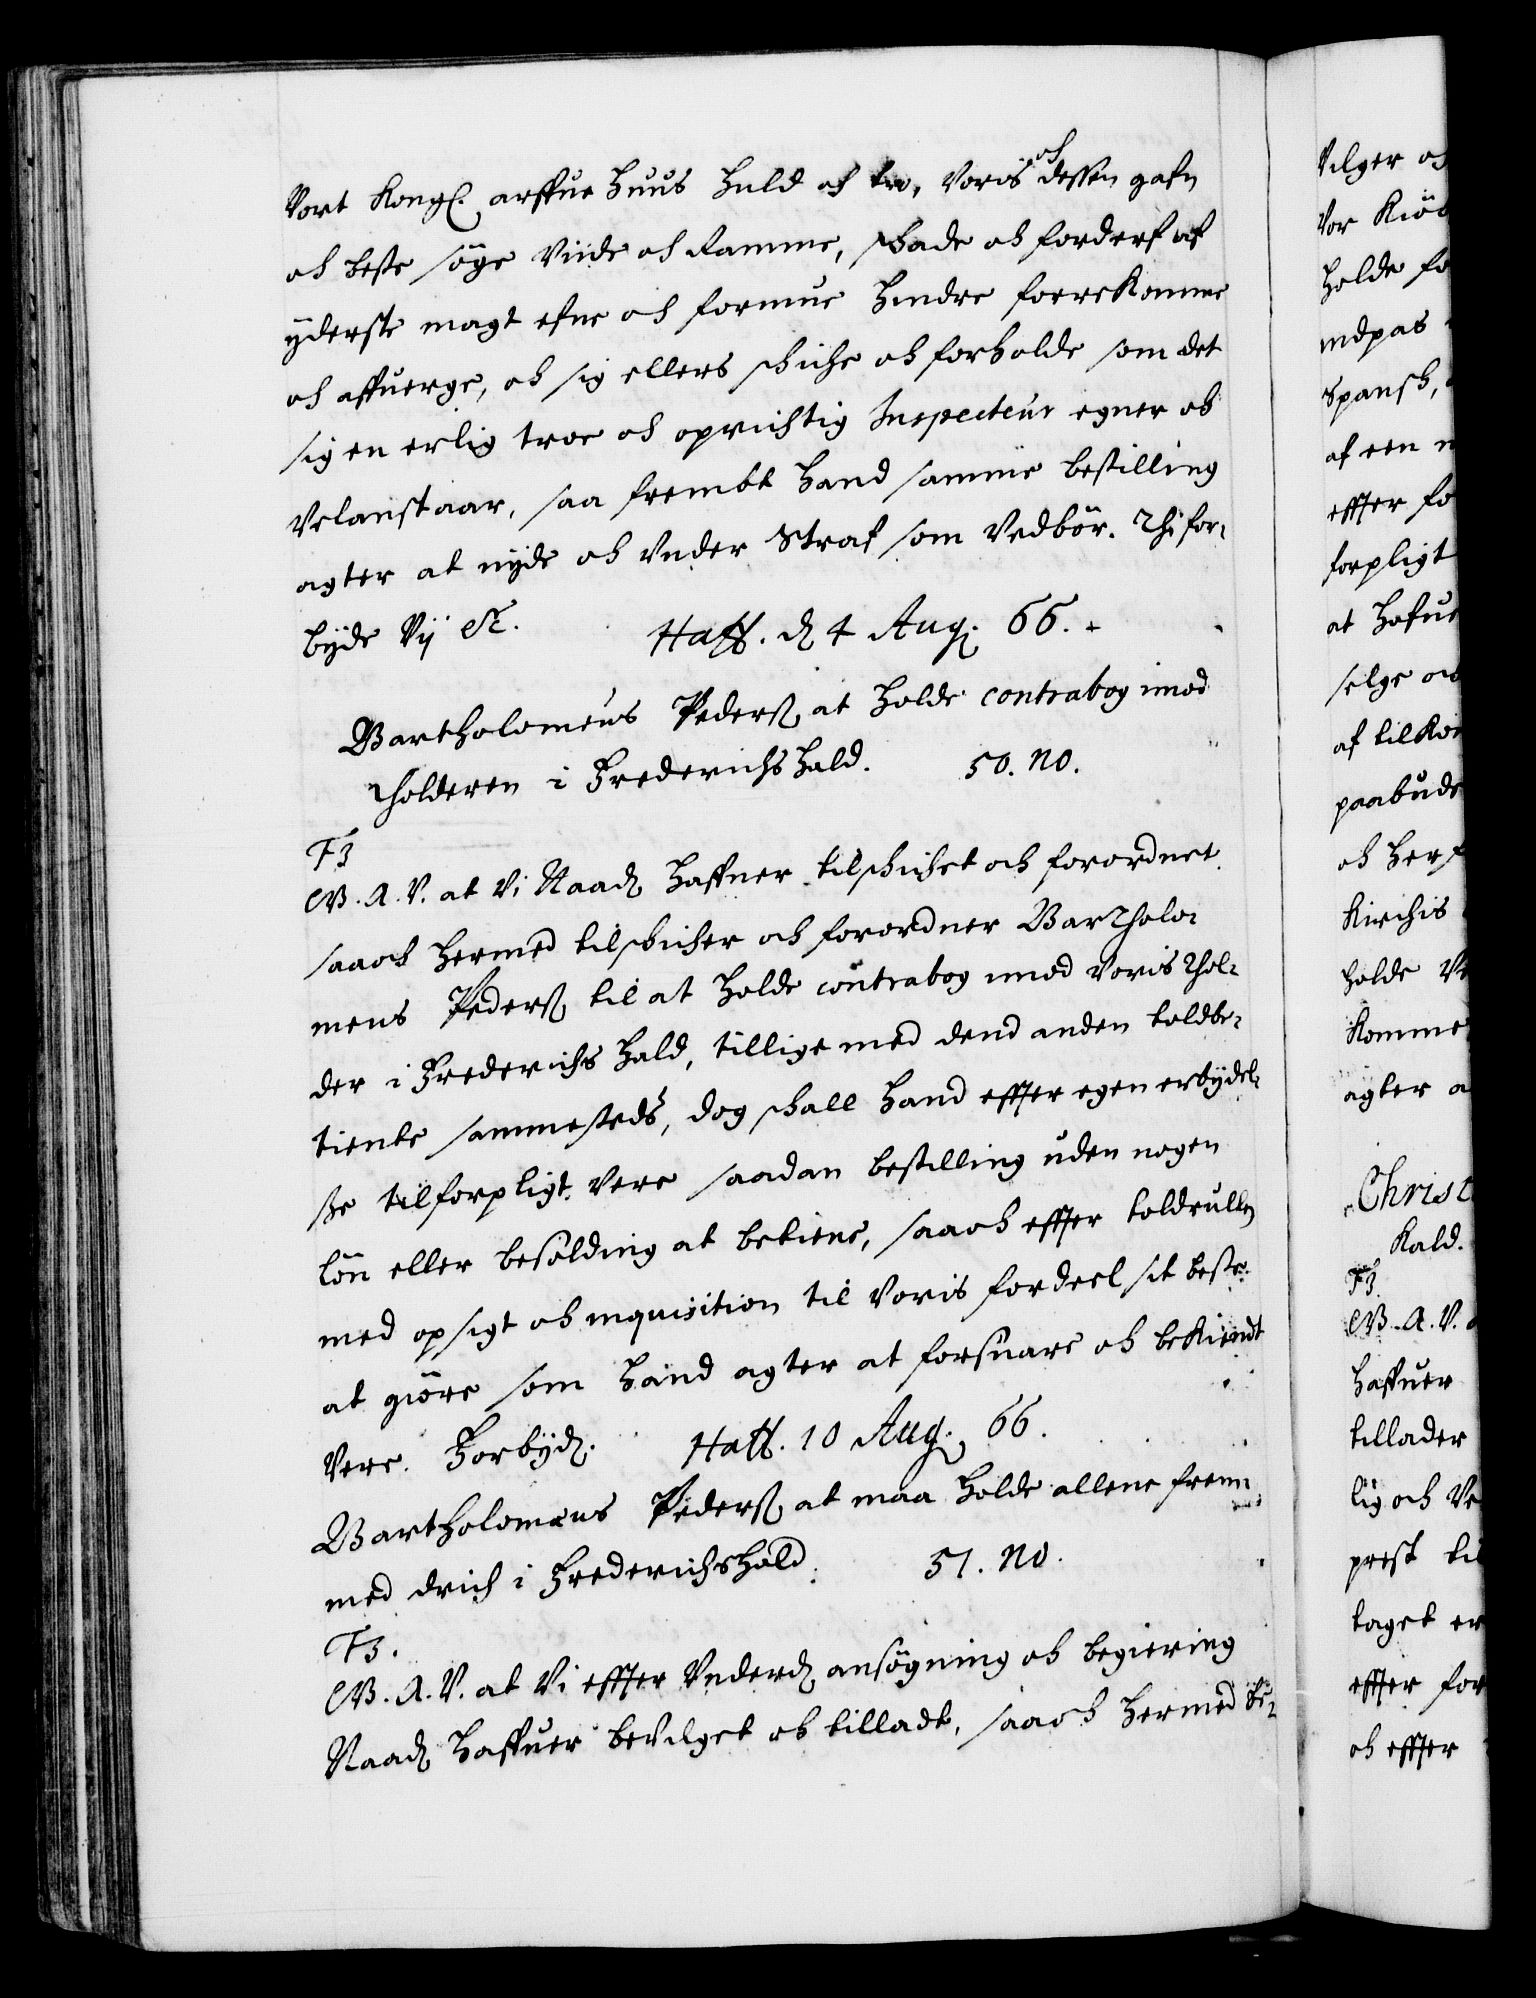 Vort Kongl. arffue Huus huld och tro, Voris och dessen gafn
och beste söge Viide och Ramme, skade och forderf af
yderste magt efne och formue hindre forrekomme
och affuerge, och sig ellers schiche och forholde som det
sig en erlig troe och oprichtig Inspecteur egner och
Velanstaar, saa frembt hand samme bestilling
agter at nyde och Vnder Straf som Vedbör. Thi for-
byde Vij etc. Haff. d 4 Aug. 66.
Bartholomeus Peders at holde contrabog imod
tholderen i Frederichshald. 50. no.
F3
G. A. V. at Vi Naad haffuer tilschichet och forordnet
saaoch hermed tilschicher och forordner Bartholo-
meus Peders til at holde contrabog imod Voris thol-
der i Frederichs hald, tillige med dend anden toldbe-
tiente sammesteds, dog schall hand effter egen erbydel-
se tilforpligt Vere saadan bestilling uden nogen
lön eller besolding at betiene, saaoch effter toldrullen
med opsigt och inquisition til Voris fordeel sit beste
at giöre som hand agter at forsuare och bekiendt
Vere. Forbyd. Haff. 10 Aug. 66.
Bartholomæus Peders at maa holde allene frem-
med drich i Frederichshald. 51. no.
F3.
G. A. V. at Vi effter Vnderd ansögning och begiering
Naad haffuer bevilget och tilladt, saaoch hermed be-
vilger och
Vor Kiöb
holde fo
indpas
Spansk,
af een
effter fo
forpligt
at hafue
selge och
af tilkom
paabude
och her
Kirchis
holde
Komme
agter a
Christ
Kald.
F3.
G. A. V.
haffuer
tillader
lig och Ve
prest til
taget er
effter for
och effter